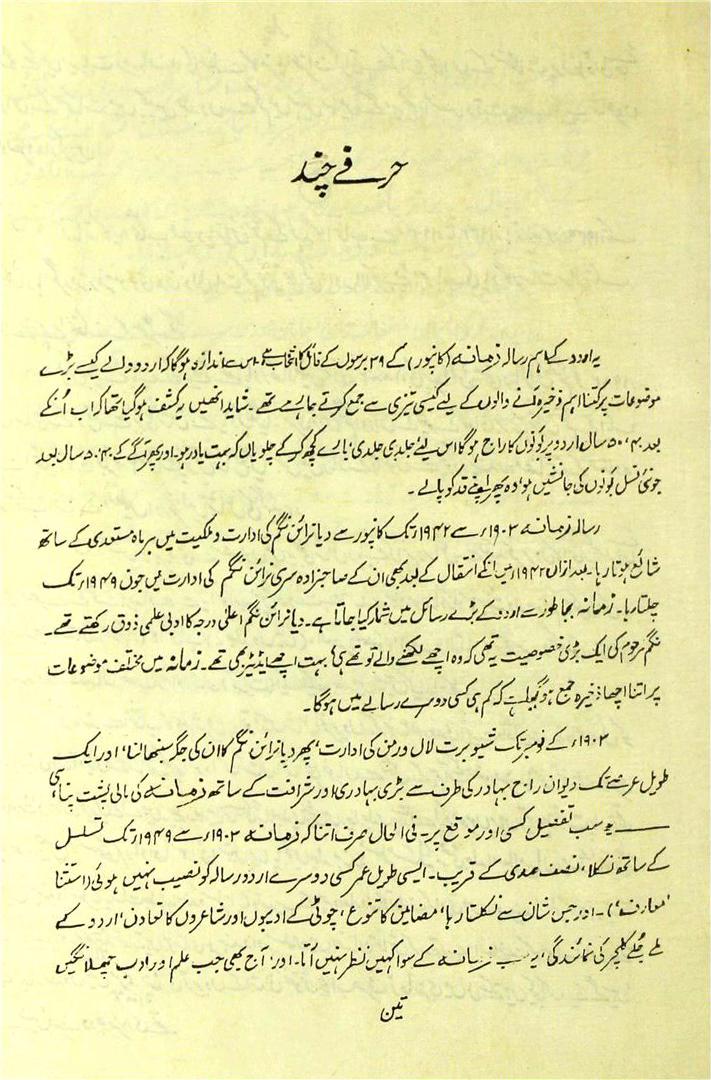 حرفے چند
یہ اردو کے اہم رسالہ زمانہ (کانپور) کے ۳۹ برسوں کے فائل کا انتخاب ہے۔ اس سے اندازہ ہوگا کہ اردو والے کیسے بڑے
موضوعات پر کتنا اہم ذخیرہ آنے والوں کے لیے کیسی تیزی سے جمع کرتے جا رہے تھے۔ شاید انھیں یہ کشف ہوگیا تھا کہ اب اُن کے
بعد ۴۰، ۵۰ سال اردو پر بَونوں کا راج ہوگا اس لیے جلدی جلدی، بارے کچھ کرکے چلو یاں کہ بہت یاد رہو۔ اور پھر آگے کے ۴۰، ۵۰ سال بعد
جو نئی نسل بَونوں کی جانشیں ہو، وہ پھر اپنے قد کو پالے۔
رسالہ زمانہ ۱۹۰۳ء سے ۱۹۴۲ء تک کانپور سے دیا نرائن نگم کی ادارت و ملکیت میں ہر ماہ مستعدی کے ساتھ
شائع ہوتا رہا۔ بعد ازاں ۱۹۴۲ء میں انکے انتقال کے بعد بھی ان کے صاحبزادہ سری نرائن نگم کی ادارت میں جون ۱۹۴۹ء تک
چلتا رہا۔ زمانہ بجا طور سے اردو کے بڑے رسائل میں شمار کیا جاتا ہے۔ دیا نرائن نگم اعلیٰ درجہ کا ادبی علمی ذوق رکھتے تھے۔
نگم مرحوم کی ایک بڑی خصوصیت یہ تھی کہ وہ اچھے لکھنے والے تو تھے ہی، بہت اچھے ایڈیٹر بھی تھے۔ زمانہ میں مختلف موضوعات
پر اتنا اچھا ذخیرہ جمع ہوگیا ہے کہ کم ہی کسی دوسرے رسالے میں ہوگا۔
۱۹۰۳ء کے نومبر تک شیو برت لال ورمن کی ادارت، پھر دیا نرائن نگم کا ان کی جگہ سنبھالنا، اور ایک
طویل عرصے تک دیوان راج بہادر کی طرف سے بڑی بہادری اور شرافت کے ساتھ زمانہ کی مالی پشت پناہی
—— یہ سب تفصیل کسی اور موقع پر۔ فی الحال صرف اتنا کہ زمانہ ۱۹۰۳ء سے ۱۹۴۹ء تک تسلسل
کے ساتھ نکلا، نصف صدی کے قریب۔ ایسی طویل عمر کسی دوسرے اردو رسالہ کو نصیب نہیں ہوئی (استثنا
'معارف')۔ اور جس شان سے نکلتا رہا، مضامین کا تنوع، چوٹی کے ادیبوں اور شاعروں کا تعاون، اردو کے
ملے جُلے کلچر کی نمائندگی، یہ سب زمانہ کے سوا کہیں نظر نہیں آتا۔ اور آج بھی جب علم اور ادب
تین